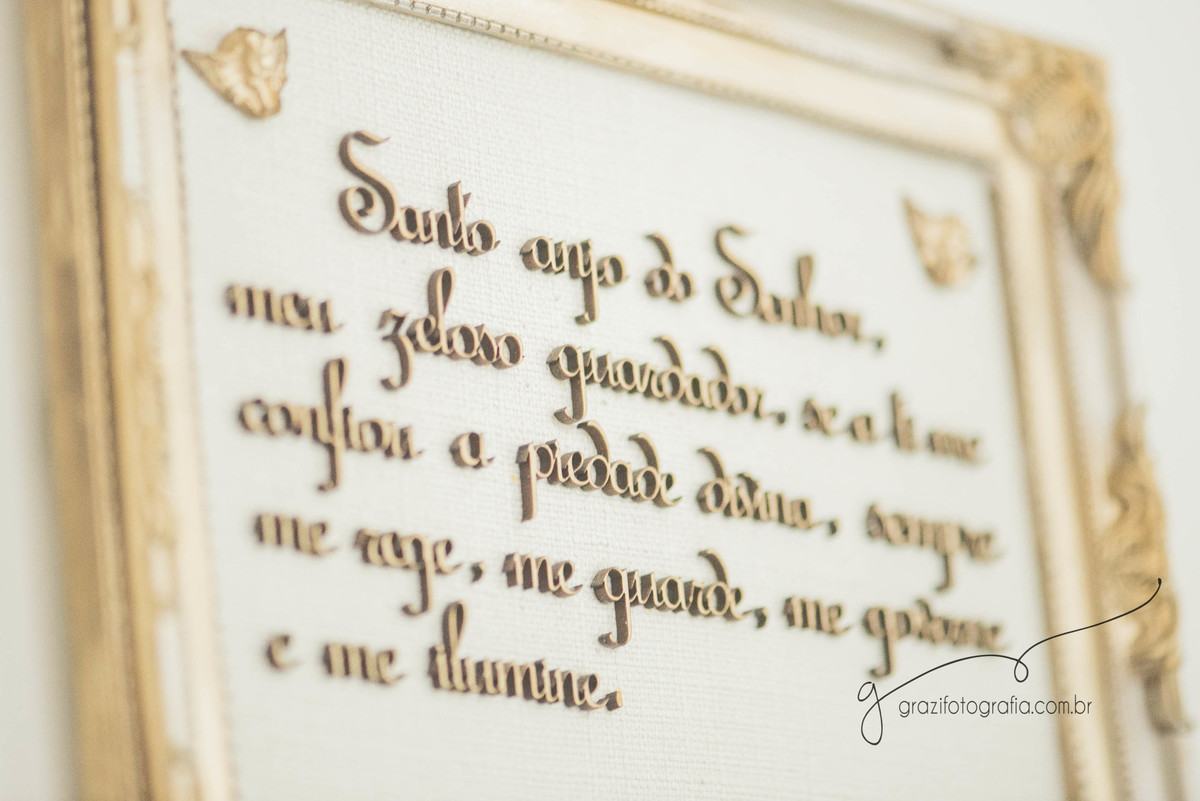 Santo anjo do Senhor,
meu zeloso guardador, se a ti me
confiou a piedade divina, sempre
me rege, me guarde, me governe
e me ilumine.
g grazifotografia.com.br